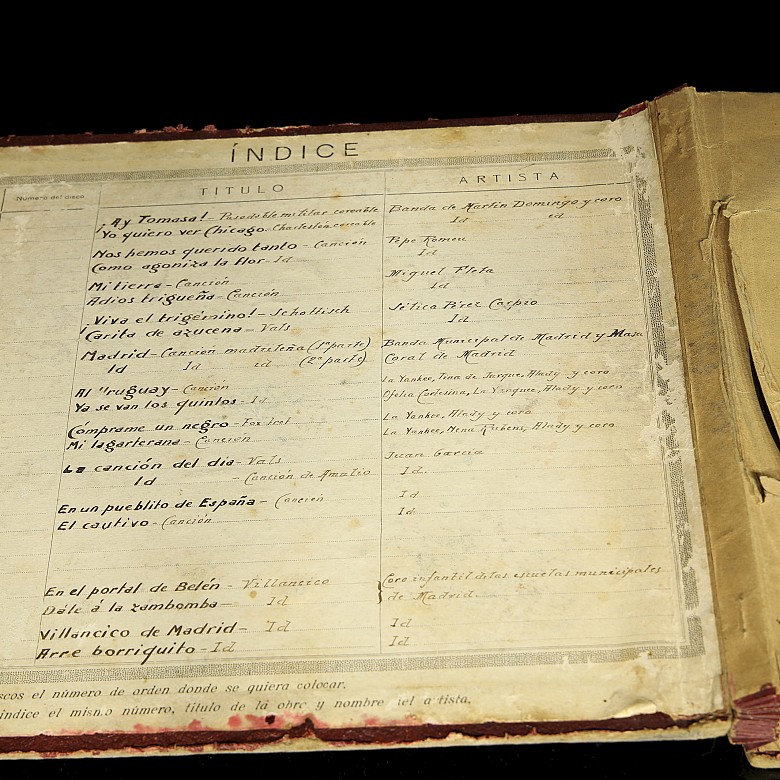 ÍNDICE
Número del disco TITULO ARTISTA
¡Ay Tomasa! - Pasodoble militar coreable Banda de Martín Domingo y coro
Yo quiero ver Chicago - Charleston coreable Id ed
Nos hemos querido tanto - Canción Pepe Romeu
Como agoniza la flor - Id Id
Mi tierra - Canción Miguel Fleta
Adios trigueña - Canción Id
¡Viva el trigémino! - Schottisch Sélica Pérez Carpio
Carita de azucena - Vals Id
Madrid - Canción madrileña (1ª parte) Banda Municipal de Madrid y Masa
Id Id ed (2ª parte) Coral de Madrid
Al Uruguay - Canción La Yankee, Tina de Jarque, Alady y coro
Ya se van los quintos - Id Ofelia Cortesina, La Yanquee, Alady y coro
Cómprame un negro - Fox trot La Yankee, Alady y coro
Mi lagarterana - Canción La Yankee, Nena Rubens, Alady y coro
La canción del día - Vals Juan García
Id - Canción de Amalio Id.
En un pueblito de España - Canción Id
El cautivo - Canción Id
En el portal de Belén - Villancico Coro infantil de las escuelas municipales
Dále á la zambomba - Id de Madrid.
Villancico de Madrid - Id Id
Arre borriquito - Id Id
scos el número de orden donde se quiera colocar.
índice el mismo número, título de la obra y nombre del artista.